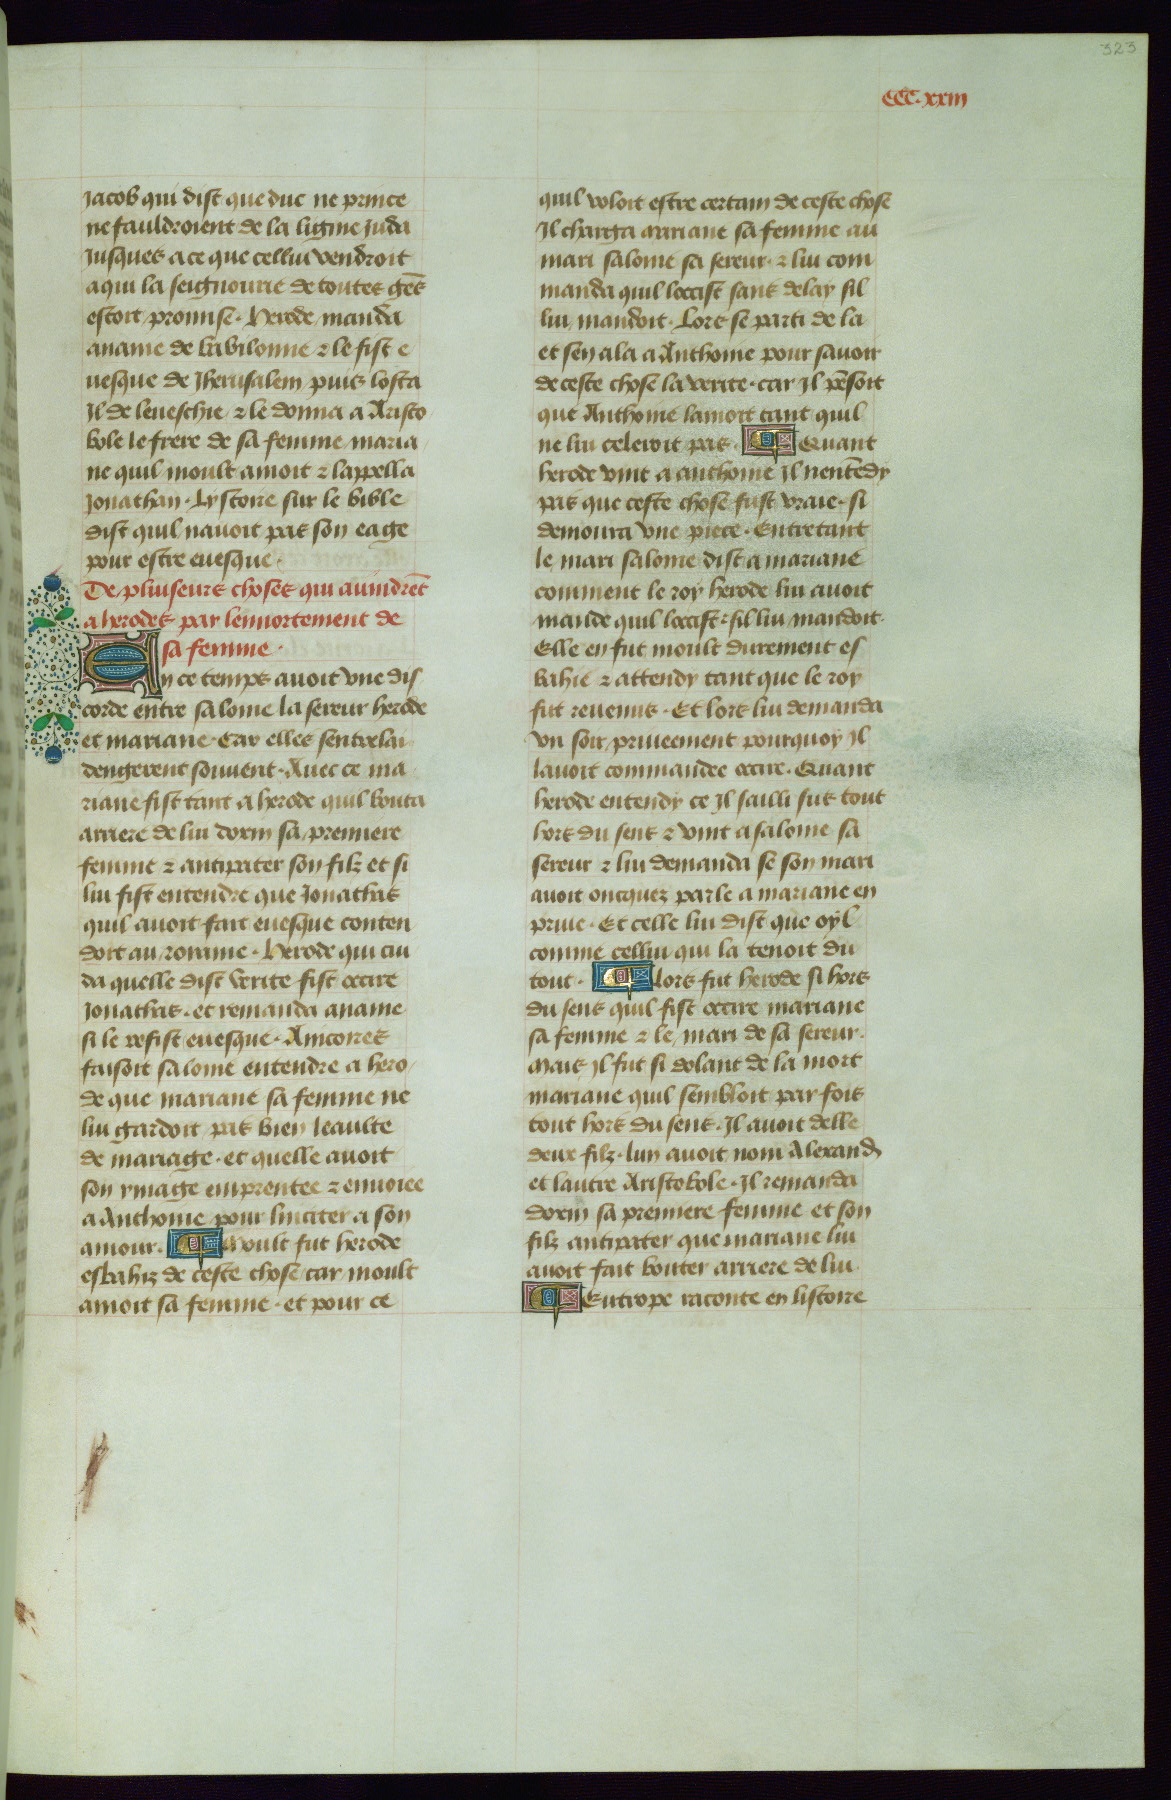 323
CCC.xxiii
Jacob qui dist que duc ne prince
ne fauldroient de la ligne Juda
Jusques a ce que cellui vendroit
a qui la seignourie de toutes gẽs
estoit promise. Herode manda
aname de babilonne ⁊ le fist e
uesque de Jherusalem puis losta
Il de leueschie ⁊ le donna a Aristo
bole le frere de sa femme maria
ne quil moult amoit ⁊ lappella
Jonathan. Lystoire sur le bible
dist quil nauoit pas son eage
pour estre euesque.
De pluiseurs choses qui auindrẽt
a herodes par lennortement de
sa femme.
En ce temps auoit vne dis
corde entre salome la sereur herode
et mariane. Car elles sentrelai
dengerent souuent. Auec ce ma
riane fist tant a herode quil bouta
arriere de lui dorin sa premiere
femme ⁊ antipater son filz et si
lui fist entendre que Jonathas
quil auoit fait euesque conten
doit au roiaume. Herode qui cui
da quelle dist verite fist occire
Jonathas. et remanda aname
si le refist euesque. Ancores
faisoit salome entendre a hero
de que mariane sa femme ne
lui gardoit pas bien leaulte
de mariage. et quelle auoit
son ymage emprentee ⁊ enuoiee
a Anthoine pour linciter a son
amour. Moult fut herode
esbahiz de ceste chose car moult
amoit sa femme. et pour ce
quil voloit estre certain de ceste chose
Il charga mariane sa femme au
mari salome sa sereur. ⁊ lui com
manda quil loccist sans delay sil
lui mandoit. Lors se parti de la
et sen ala a Anthoine pour sauoir
de ceste chose la verite. car Il pẽsoit
que Anthoine lamoit tant quil
ne lui celeroit pas. Quant
herode vint a anthoine Il nentẽdy
pas que ceste chose fust vraie. si
demoura vne piece. Entretant
le mari salome dist a mariane
comment le roy herode lui auoit
mande quil loccist. sil lui mandoit.
Elle en fut moult durement es
bahie ⁊ attendy tant que le roy
fut reuenus. Et lors lui demanda
vn soir priueement pourquoy Il
lauoit commandee occire. Quant
herode entendy ce Il sailli sus tout
hors du sens ⁊ vint a salome sa
sereur ⁊ lui demanda se son mari
auoit oncquez parle a mariane en
priue. Et celle lui dist que oyl
comme cellui qui la tenoit du
tout. Lors fut herode si hors
du sens quil fist occire mariane
sa femme ⁊ le mari de sa sereur.
Mais Il fut si dolant de la mort
mariane quil sembloit par fois
tout hors du sens. Il auoit delle
deux filz. lun auoit nom Alexand
et lautre Aristobole. Il remanda
dorin sa premiere femme et son
filz antipater que mariane lui
auoit fait bouter arriere de lui
Eutrope raconte en listoire